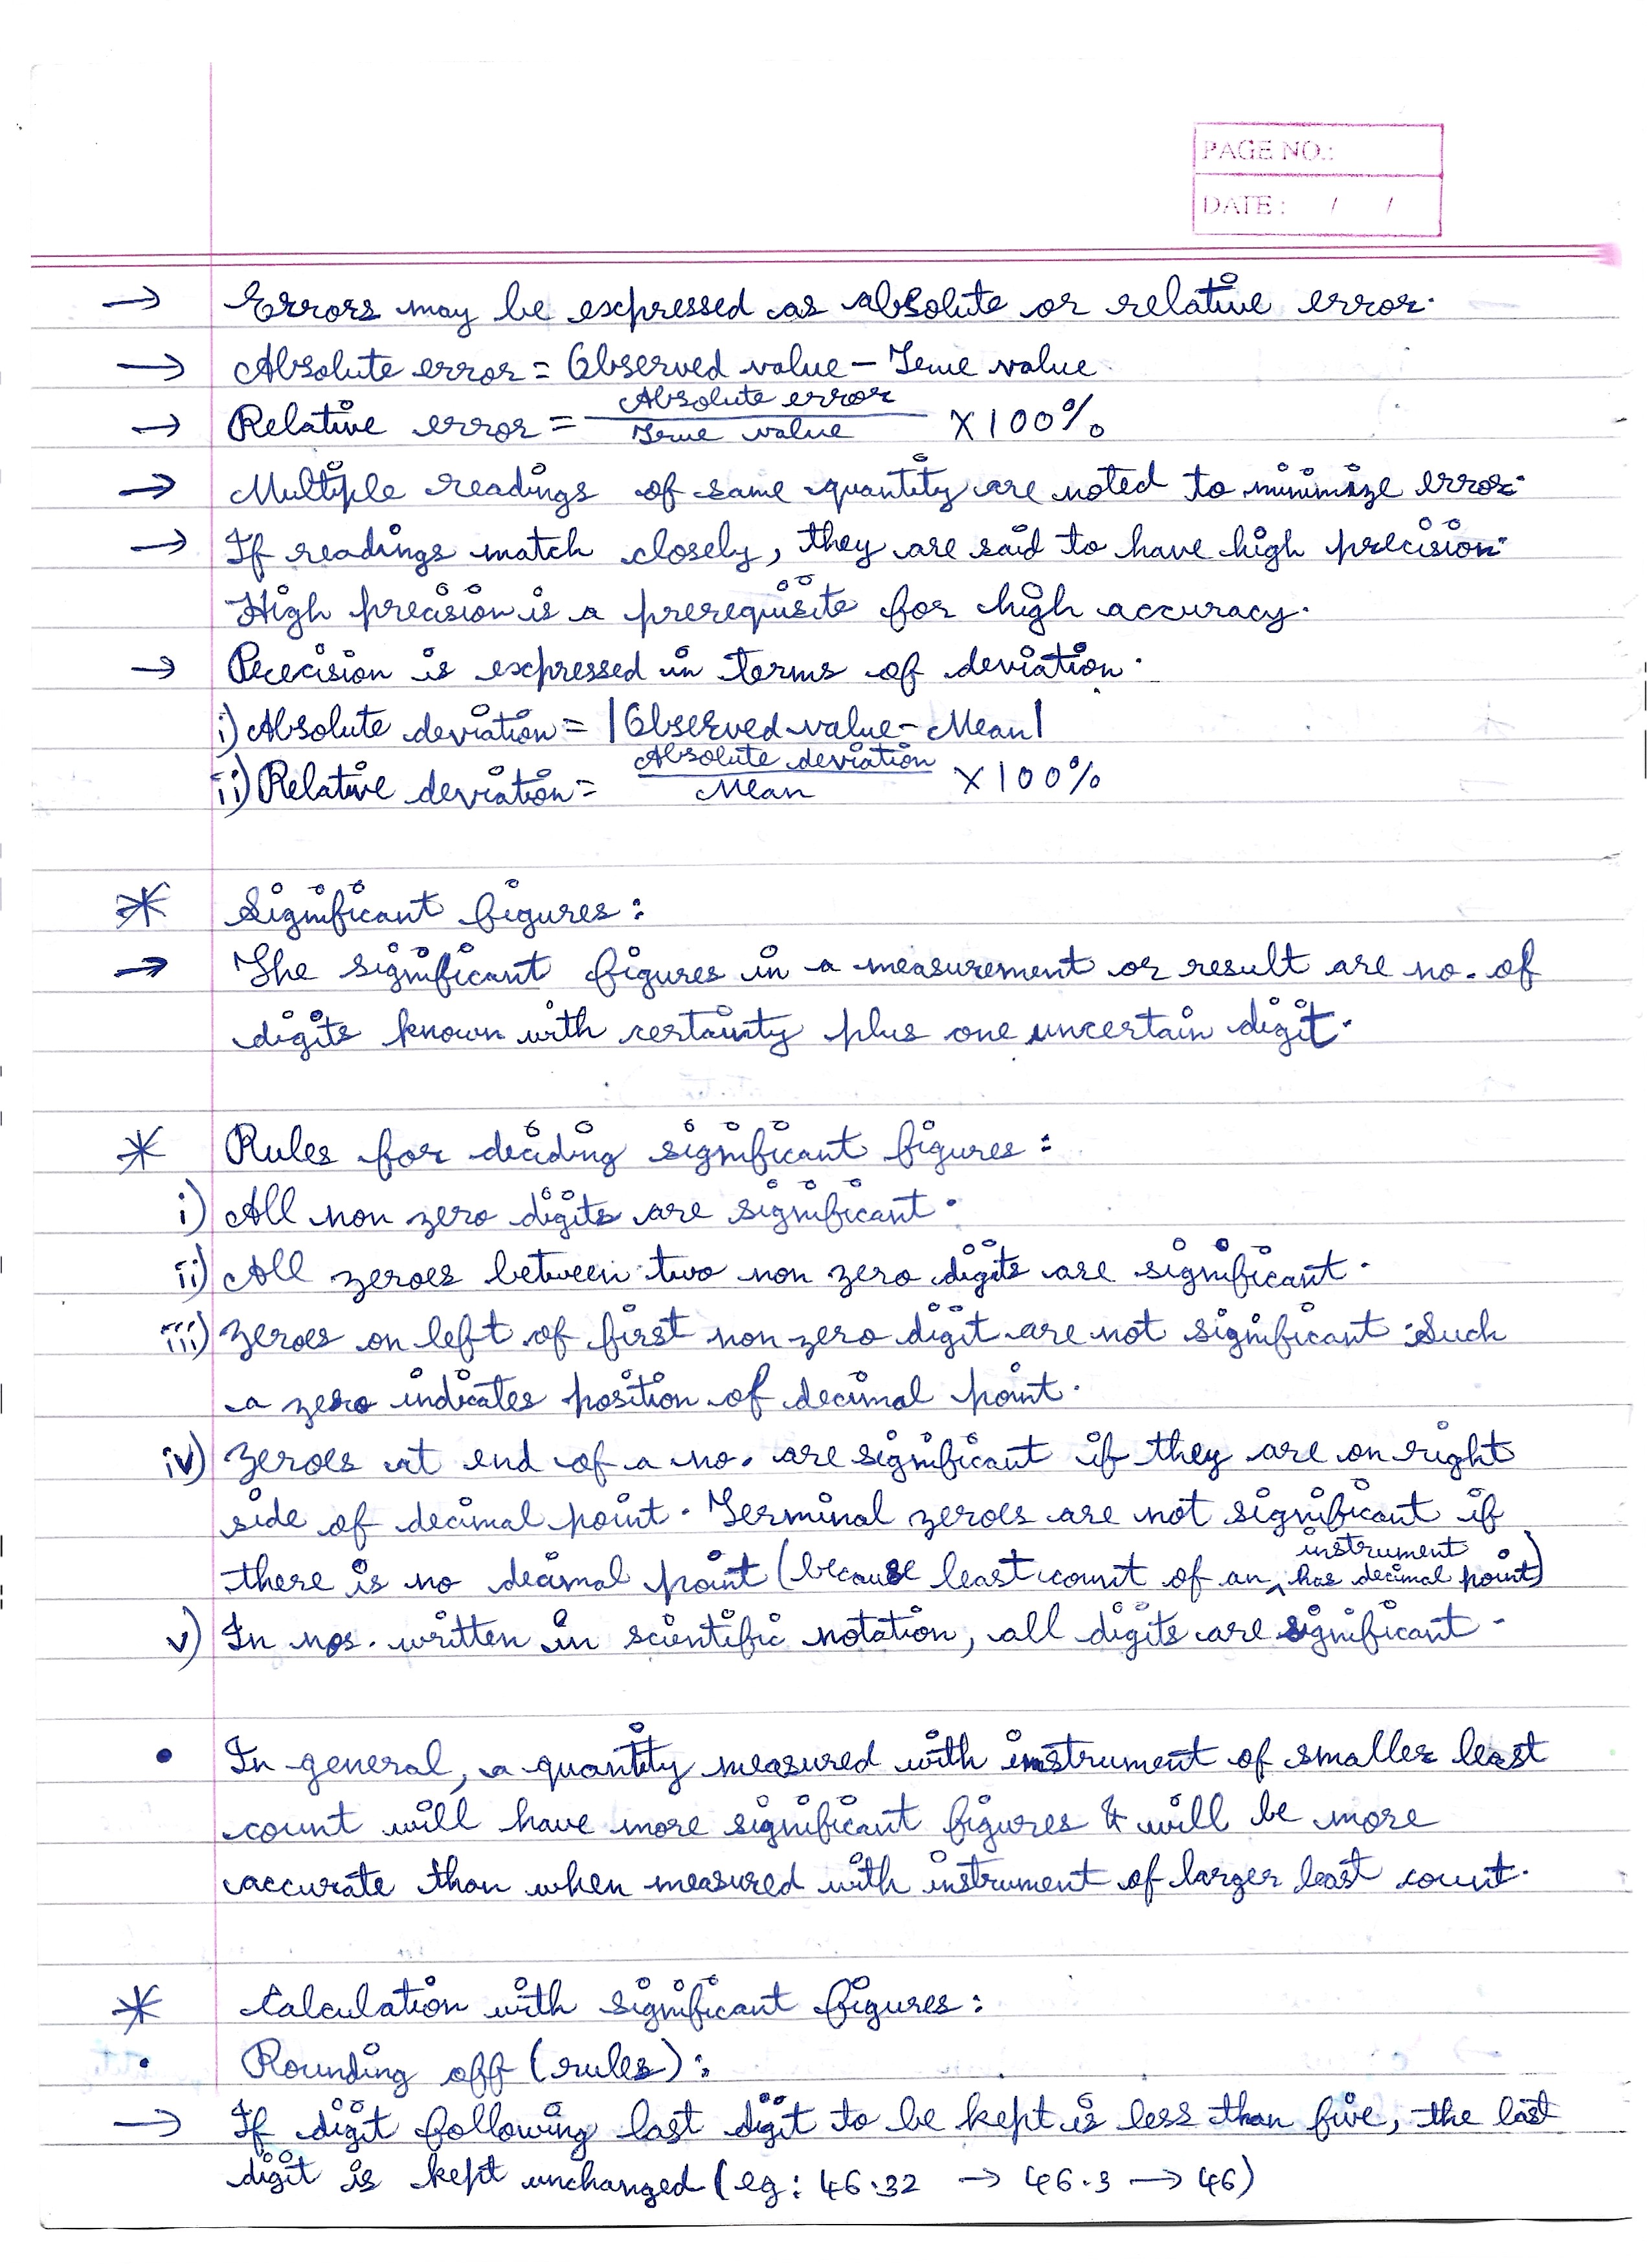 PAGE NO.:
DATE: / /
→ Errors may be expressed as absolute or relative error.
→ Absolute error = Observed value - True value
→ Relative error = Absolute error / True value × 100%
→ Multiple readings of same quantity are noted to minimize error.
→ If readings match closely, they are said to have high precision.
High precision is a prerequisite for high accuracy.
→ Precision is expressed in terms of deviation.
i) Absolute deviation = |Observed value - Mean|
ii) Relative deviation = Absolute deviation / Mean × 100%
* Significant figures:
→ The significant figures in a measurement or result are no. of
digits known with certainty plus one uncertain digit.
* Rules for deciding significant figures:
i) All non zero digits are significant.
ii) All zeroes between two non zero digits are significant.
iii) Zeroes on left of first non zero digit are not significant. Such
a zero indicates position of decimal point.
iv) Zeroes at end of a no. are significant if they are on right
side of decimal point. Terminal zeroes are not significant if
there is no decimal point (because least count of an instrument has decimal point)
v) In nos. written in scientific notation, all digits are significant.
• In general, a quantity measured with instrument of smaller least
count will have more significant figures & will be more
accurate than when measured with instrument of larger least count.
* Calculation with significant figures:
• Rounding off (rules):
→ If digit following last digit to be kept is less than five, the last
digit is kept unchanged (eg: 46.32 → 46.3 → 46)